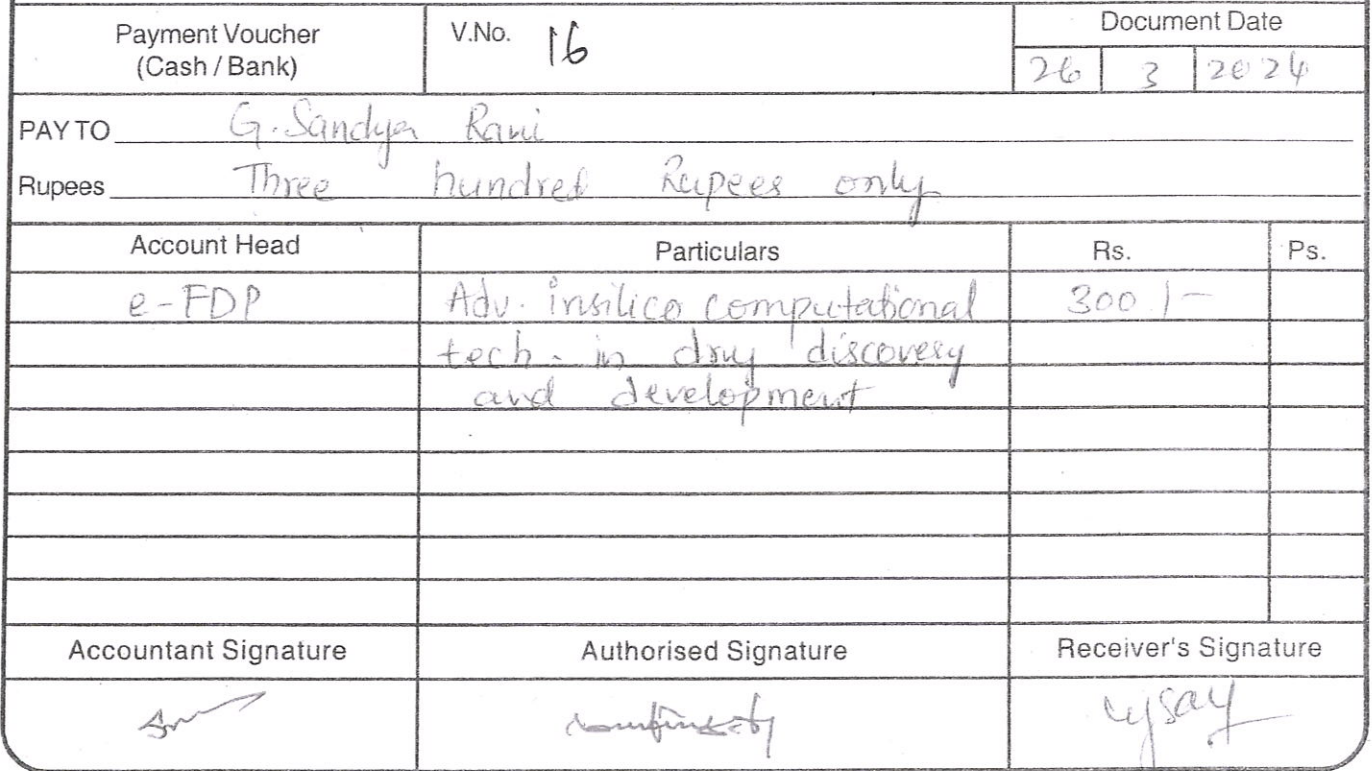 Payment Voucher
(Cash / Bank)
V.No. 16
Document Date
26 3 2024
PAY TO G. Sandya Rani
Rupees Three hundred Rupees only
Account Head Particulars Rs. Ps.
e-FDP Adv. insilico computational 300/-
tech. in drug discovery
and development
Accountant Signature Authorised Signature Receiver's Signature